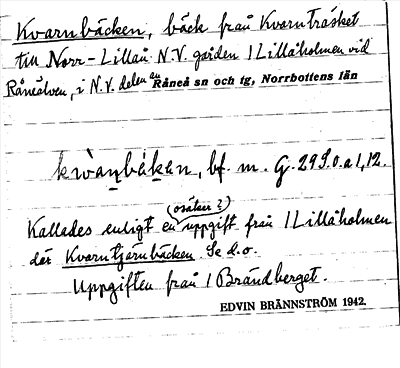 Kvarnbäcken, bäck från Kvarnträsket
till Norr-Lillån N.V. gården 1 Lillåholmen vid
Råneälven, i N.V. delen av Råneå sn och tg, Norrbottens län
kwànbäkən, bf. m. G. 29 S.o.a 1, 12.
(osäker?)
Kallades enligt en uppgift från 1 Lillåholmen
där Kvarntjärnbäcken. Se d.o.
Uppgiften från 1 Brändberget.
EDVIN BRÄNNSTRÖM 1942.